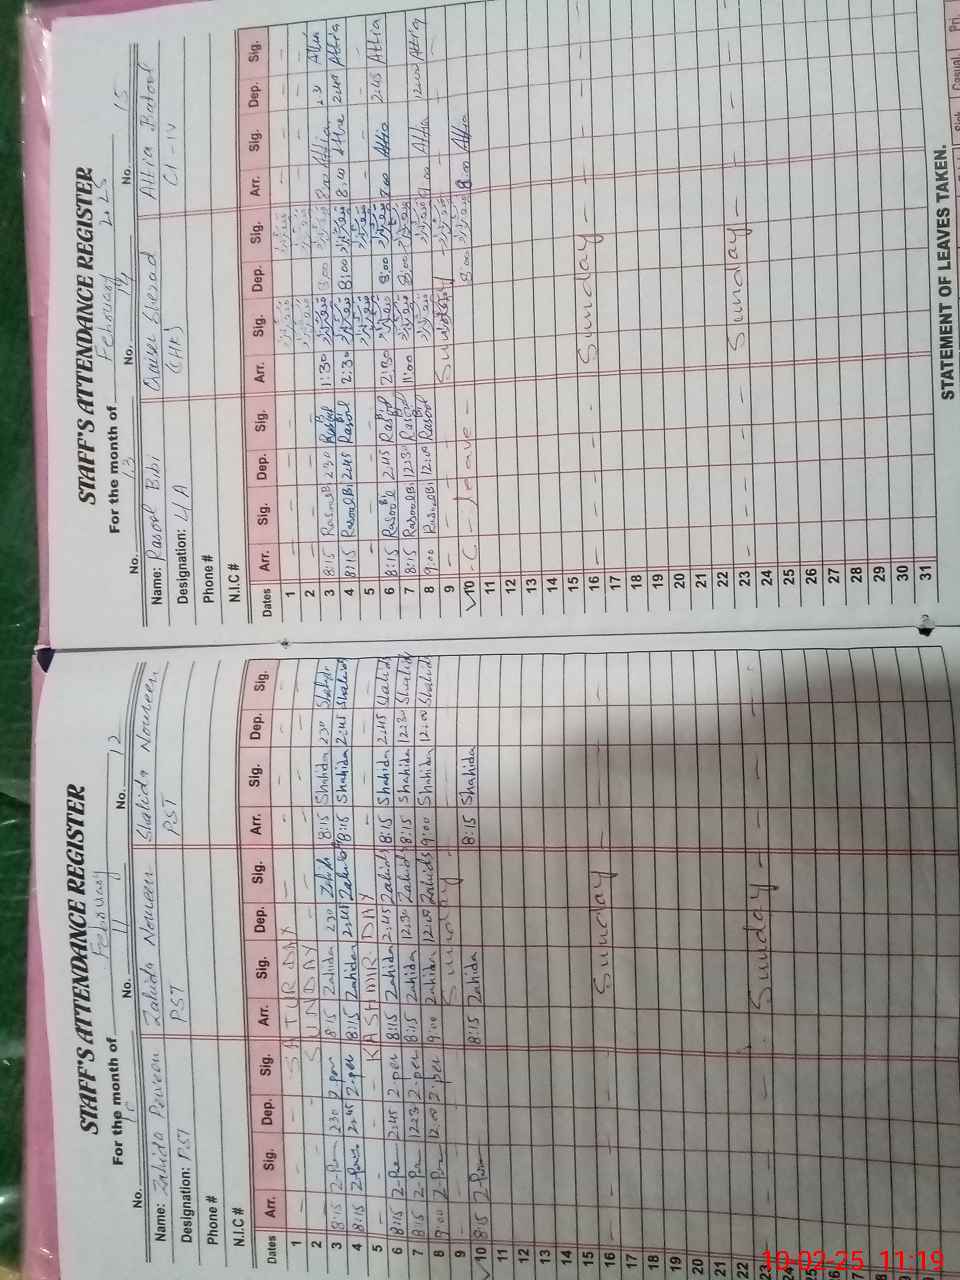 STAFF'S ATTENDANCE REGISTER
For the month of February
No. 10 No. 11 No. 12
Name: Zahida Perveen Zahida Noureen Shahida Noureen
Designation: PST PST PST
Phone #
N.I.C #
Dates Arr. Sig. Dep. Sig. Arr. Sig. Dep. Sig. Arr. Sig. Dep. Sig.
1 SATURDAY
2 SUNDAY
3 8:15 2-Per 230 2-per 8:15 Zahida 230 Zahida 8:15 Shahida 230 Shahida
4 8:15 2-Per 2:45 2-per 8:15 Zahida 2:45 Zahida 8:15 Shahida 2:45 Shahida
5 KASHMIR DAY
6 8:15 2-Per 2:45 2-per 8:15 Zahida 2:45 Zahida 8:15 Shahida 2:45 Shahida
7 8:15 2-Per 1223 2-per 8:15 Zahida 12:30 Zahida 8:15 Shahida 12:30 Shahida
8 9:00 2-Per 12:00 2-per 9:00 Zahida 12:00 Zahida 9:00 Shahida 12:00 Shahida
9 Sunday
10 8:15 2-Per 8:15 Zahida 8:15 Shahida
11
12
13
14
15
16 Sunday
17
18
19
20
21
22
23 Sunday
24
25
26
27
STAFF'S ATTENDANCE REGISTER
For the month of February 2025
No. 13 No. 14 No. 15
Name: Rasool Bibi Qaiser Shezad Attia Batool
Designation: LA (HK) Cl-IV
Phone #
N.I.C #
Dates Arr. Sig. Dep. Sig. Arr. Sig. Dep. Sig. Arr. Sig. Dep. Sig.
1
2
3 8:15 Rasool Bi 230 Rasool Bi 1:30 8:00 8:00 Attia 23 Attia
4 8:15 Rasool Bi 2:45 Rasool Bi 2:30 8:00 8:00 Attia 2:40 Attia
5
6 8:15 Rasool Bi 2:45 Rasool Bi 2:30 8:00 8:00 Attia 2:45 Attia
7 8:15 Rasool Bi 12:30 Rasool Bi 11:00 8:00
8 9:00 Rasool Bi 12:00 Rasool Bi 9:00 Attia 12:00 Attia
9 Sunday
10 C - Leave - 8:00 8:00 Attia
11
12
13
14
15
16 Sunday
17
18
19
20
21
22
23 Sunday
24
25
26
27
28
29
30
31
STATEMENT OF LEAVES TAKEN.
Casual
10-02-25 11:19